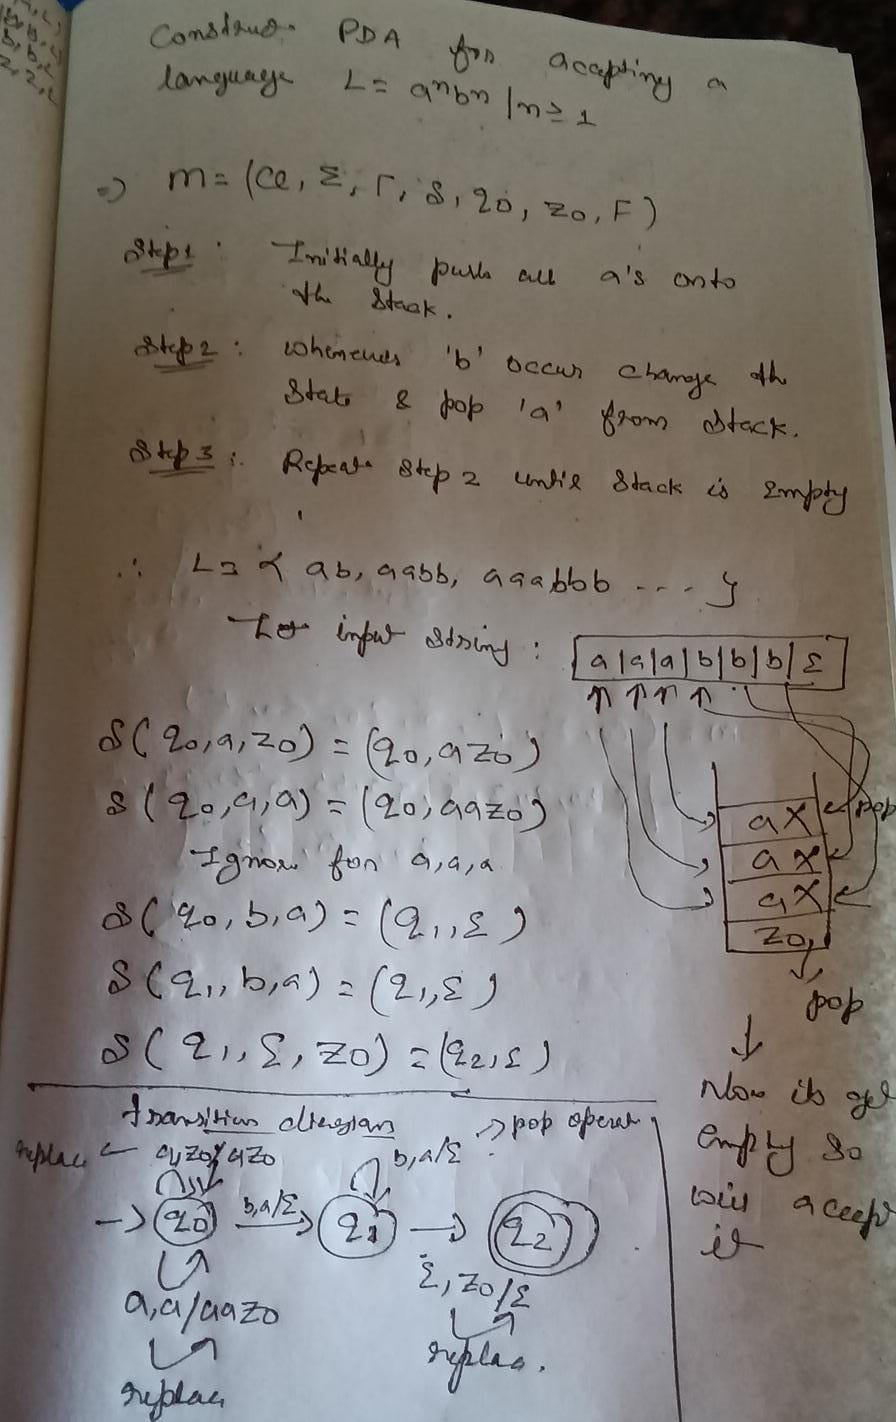 Construct PDA for accepting a
language L = aⁿbⁿ | n ≥ 1
=> M = (Q, Σ, Γ, δ, q0, z0, F)
Step 1: Initially push all a's onto
the Stack.
Step 2: whenever 'b' occur change the
State & pop 'a' from Stack.
Step 3: Repeat Step 2 until Stack is Empty
∴ L = { ab, aabb, aaabbb ---- }
Let input string: a|a|a|b|b|b|ε
δ(q0, a, z0) = (q0, az0)
δ(q0, a, a) = (q0, aaz0)
Ignore for a, a, a
δ(q0, b, a) = (q1, ε)
δ(q1, b, a) = (q1, ε)
δ(q1, ε, z0) = (q2, ε)
ax pop
ax
ax
z0
pop
Now its get
empty so
will accept
it
Transition diagram
replac a, z0/az0
b, a/ε -> pop operat
q0 b, a/ε q1 q2
a, a/aaz0
ε, z0/ε
replac
replac.